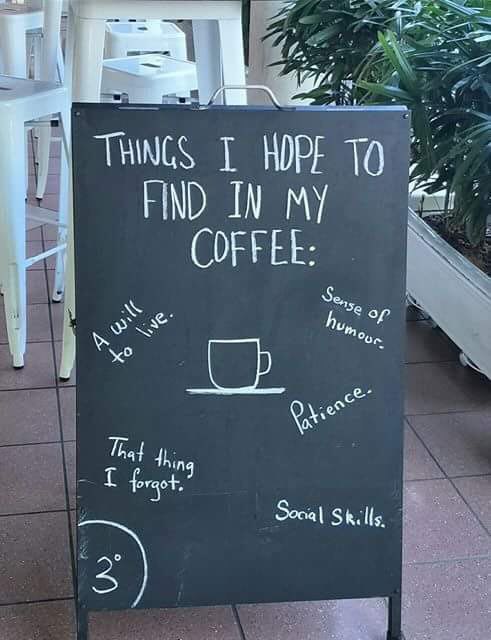 THINGS I HOPE TO
FIND IN MY
COFFEE:
A will
to live.
Sense of
humour.
Patience.
That thing
I forgot.
Social Skills.
3°